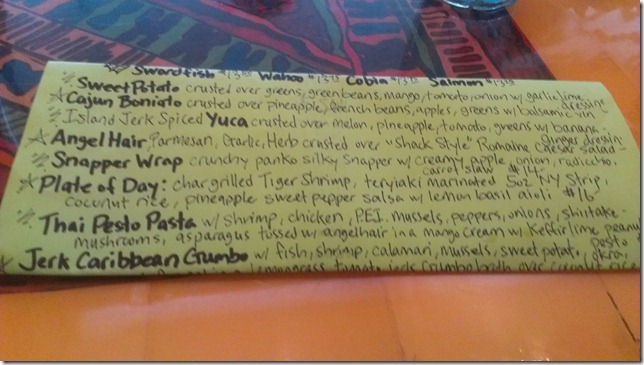 Swordfish $13.95 Wahoo $13.95 Cobia $13.95 Salmon $13.95
Sweet Potato crusted over greens, green beans, mango, tomato, onion w/ garlic lime dressing
Cajun Boniato crusted over pineapple, french beans, apples, greens w/ balsamic vin
Island Jerk Spiced Yuca crusted over melon, pineapple, tomato, greens w/ banana ginger dressin
Angel Hair Parmesan, Garlic, Herb crusted over "Shack Style" Romaine Caesar salad
Snapper Wrap crunchy panko silky snapper w/ creamy apple, onion, radicchio,
carrot slaw $14
Plate of Day: char grilled Tiger Shrimp, teriyaki marinated 5oz NY Strip,
coconut rice, pineapple sweet pepper salsa w/ lemon basil aioli $16
Thai Pesto Pasta w/ shrimp, chicken, P.E.I. mussels, peppers, onions, shiitake
mushrooms, asparagus tossed w/ angelhair in a mango cream w/ Keffir lime, peanut
pesto
Jerk Caribbean Gumbo w/ fish, shrimp, calamari, mussels, sweet potato, okra,
lemongrass tomato jerk gumbo broth over